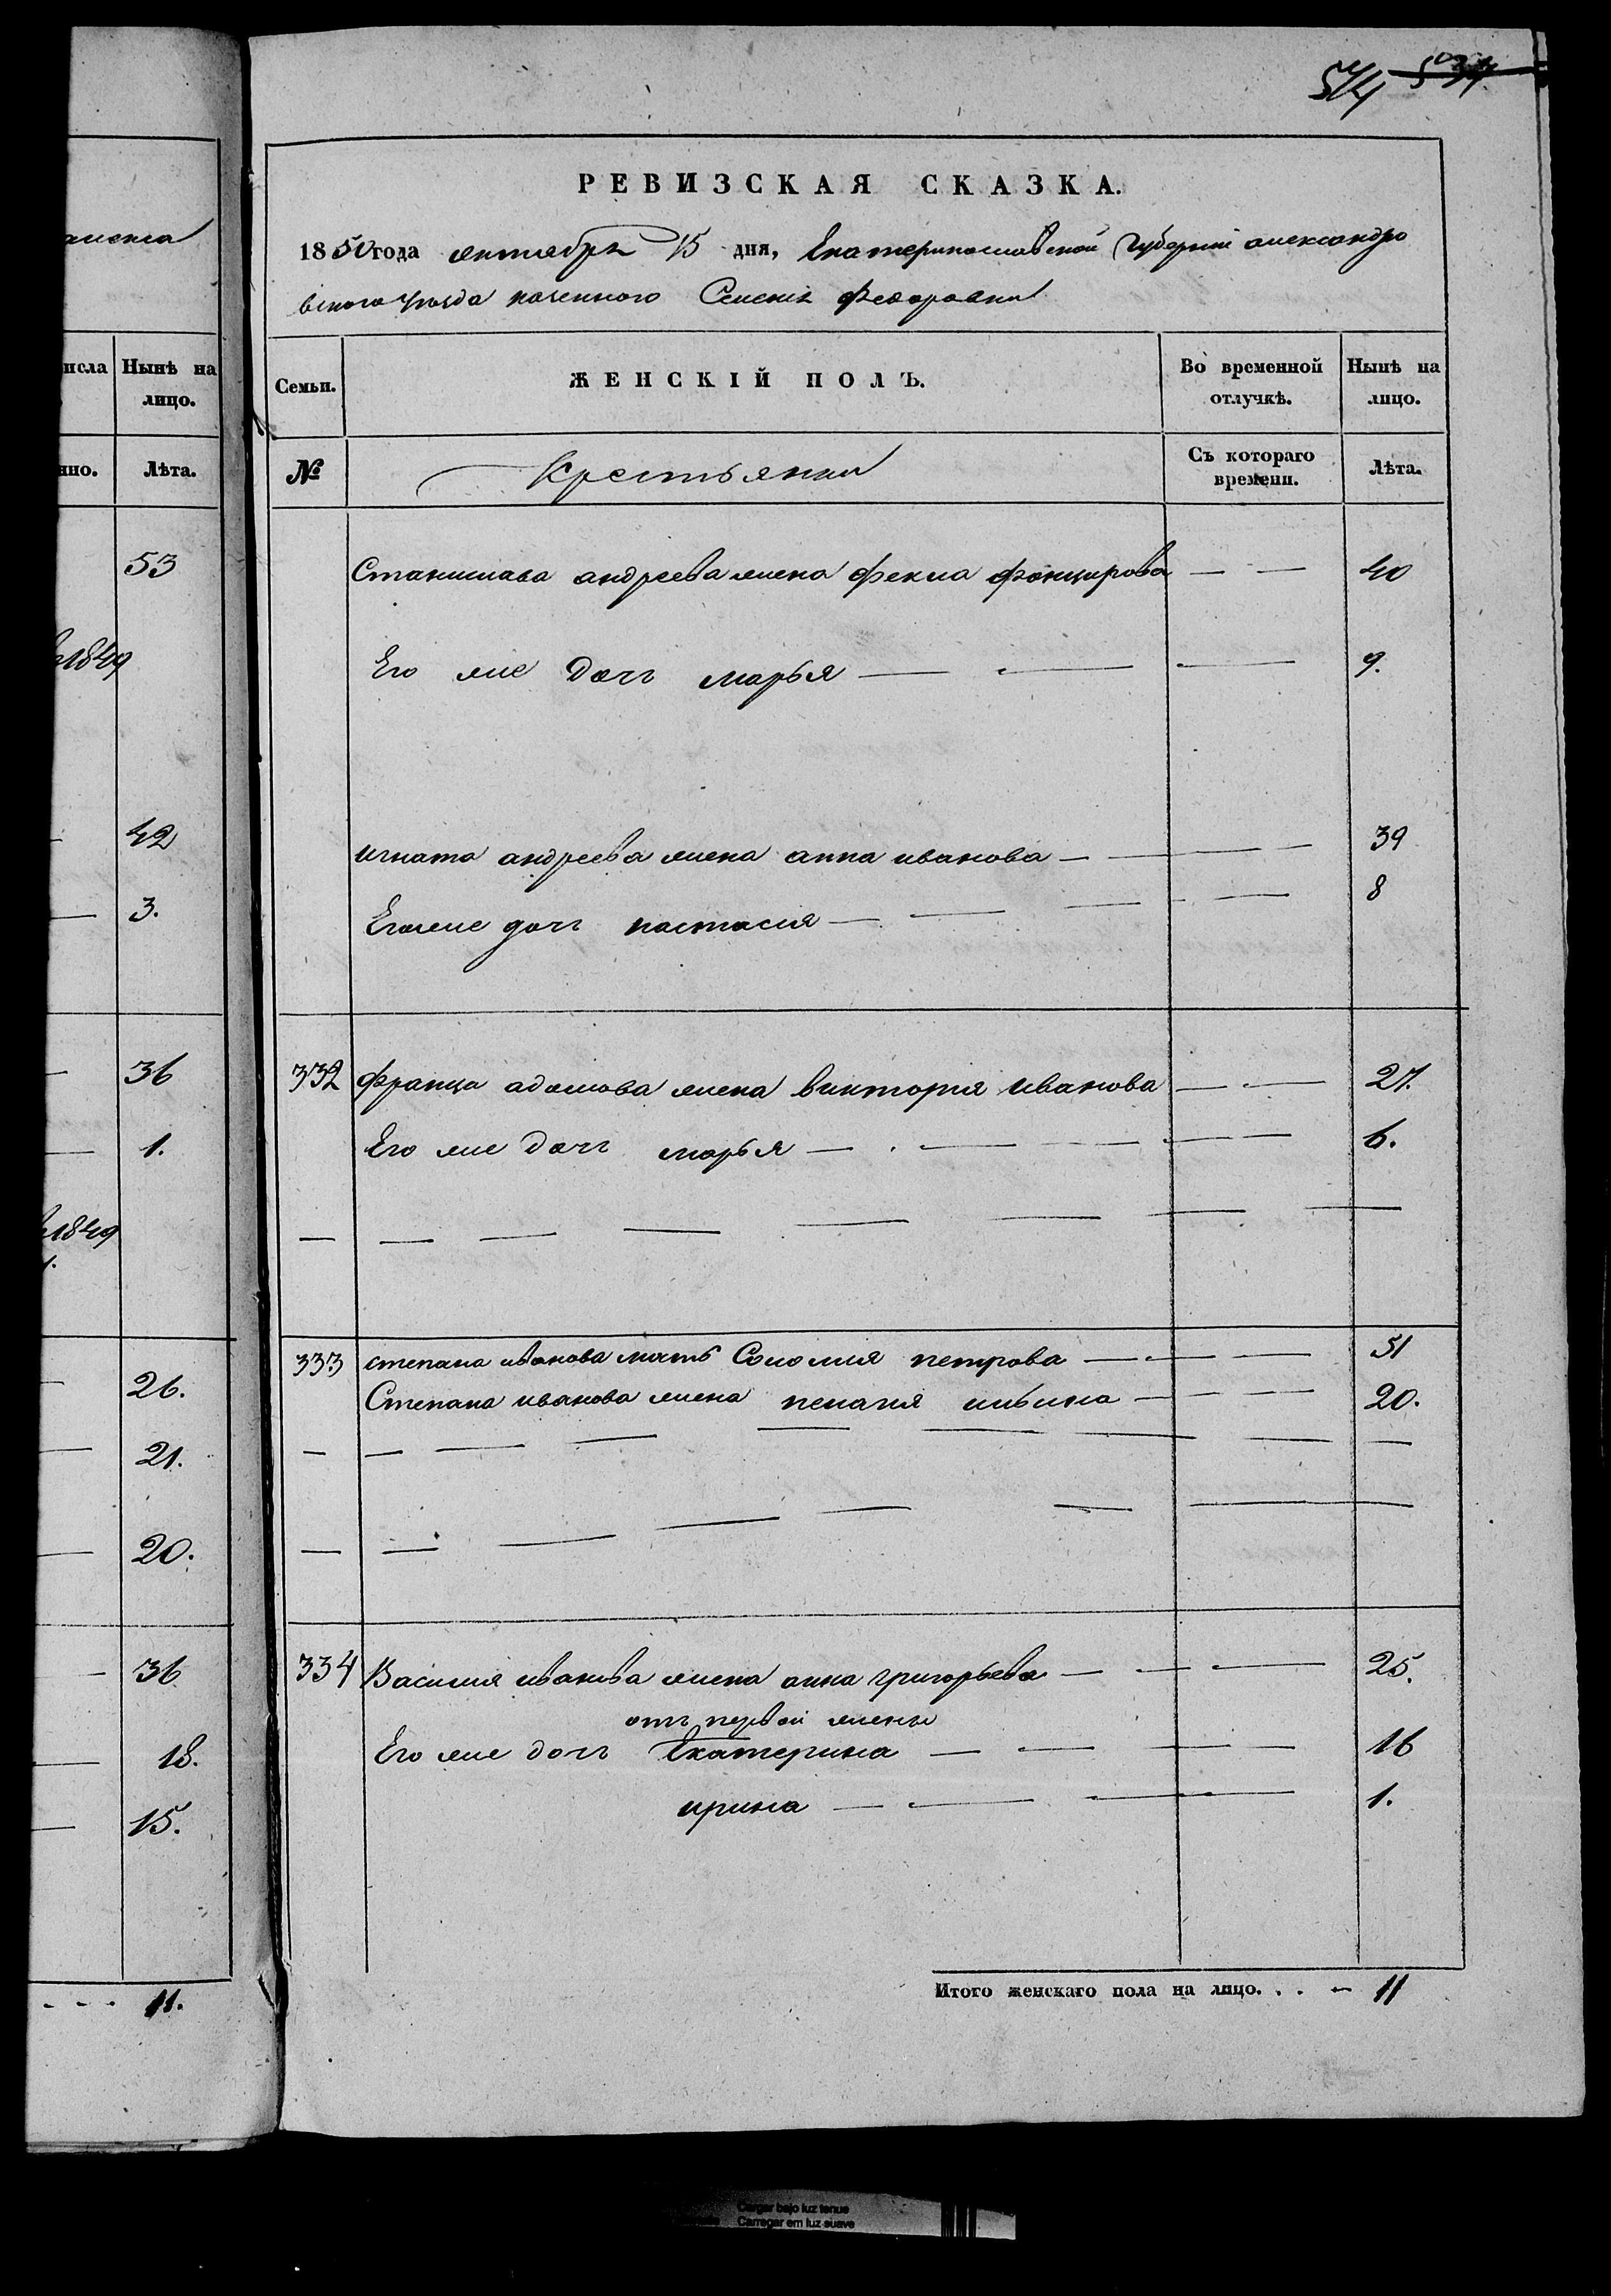 574 5034.
РЕВИЗСКАЯ СКАЗКА.
1850 года октября 15 дня, Екатеринославской Губернии александро
вского уезда казенного Селения Федоровки
Семьи.
ЖЕНСКІЙ ПОЛЪ.
Во временной отлучкѣ.
Нынѣ на лицо.
№
Крестьянки
Съ котораго времени.
Лѣта.
Станислава андреева жена Фекла — — 40
Его же дочь марья — — — 9.
игната андреева жена анна иванова — — — 39
Егоже дочь настасия — — — 8
332 Франца адамова жена викторія иванова — — 27.
Его же дочь марья — — — 6.
333 степана иванова мать Соломия петрова — — — 51
Степана иванова жена пелагия ильина — — — 20.
334 Василия иванова жена анна григорьева — — — 25.
отъ первой жены
Его же дочь Екатерина — — — 16
ирина — — — 1.
Итого женскаго пола на лицо. . . — 11
исла
Нынѣ на лицо.
нно.
Лѣта.
53
1849
42
3.
36
1.
1849
26.
21.
20.
36
18.
15.
11.
Cargar bajo luz tenue
Carregar em luz suave